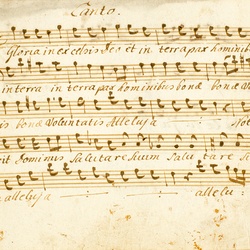 Canto.
Gloria in excelsis Deo et in terra pax hominib
in terra in terra pax hominibus bonæ bonæ vo
is bonæ Voluntatis Alleluja No
it Dominus Salutare suum Salu tare s
alleluja allelu